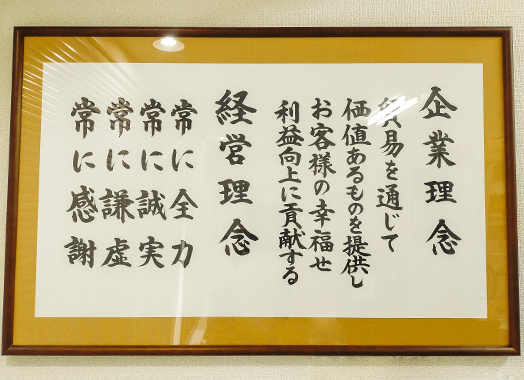 企業理念
貿易を通じて
価値あるものを提供し
お客様の幸福せ
利益向上に貢献する
経営理念
常に全力
常に誠実
常に謙虚
常に感謝